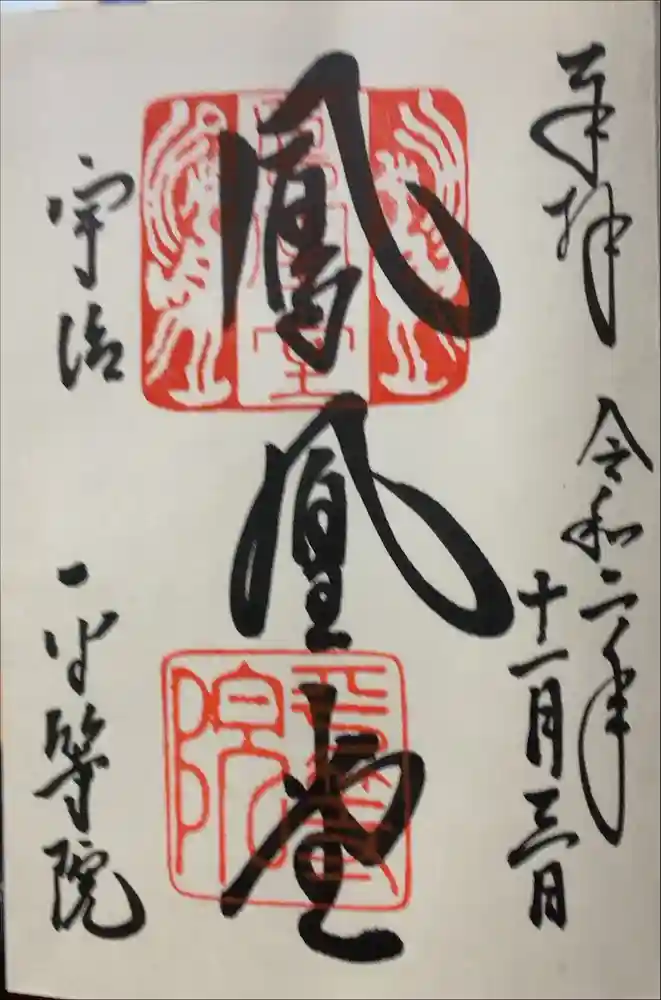 奉拝
令和二年
十一月三日
鳳凰堂
宇治
平等院
鳳凰堂
平等院